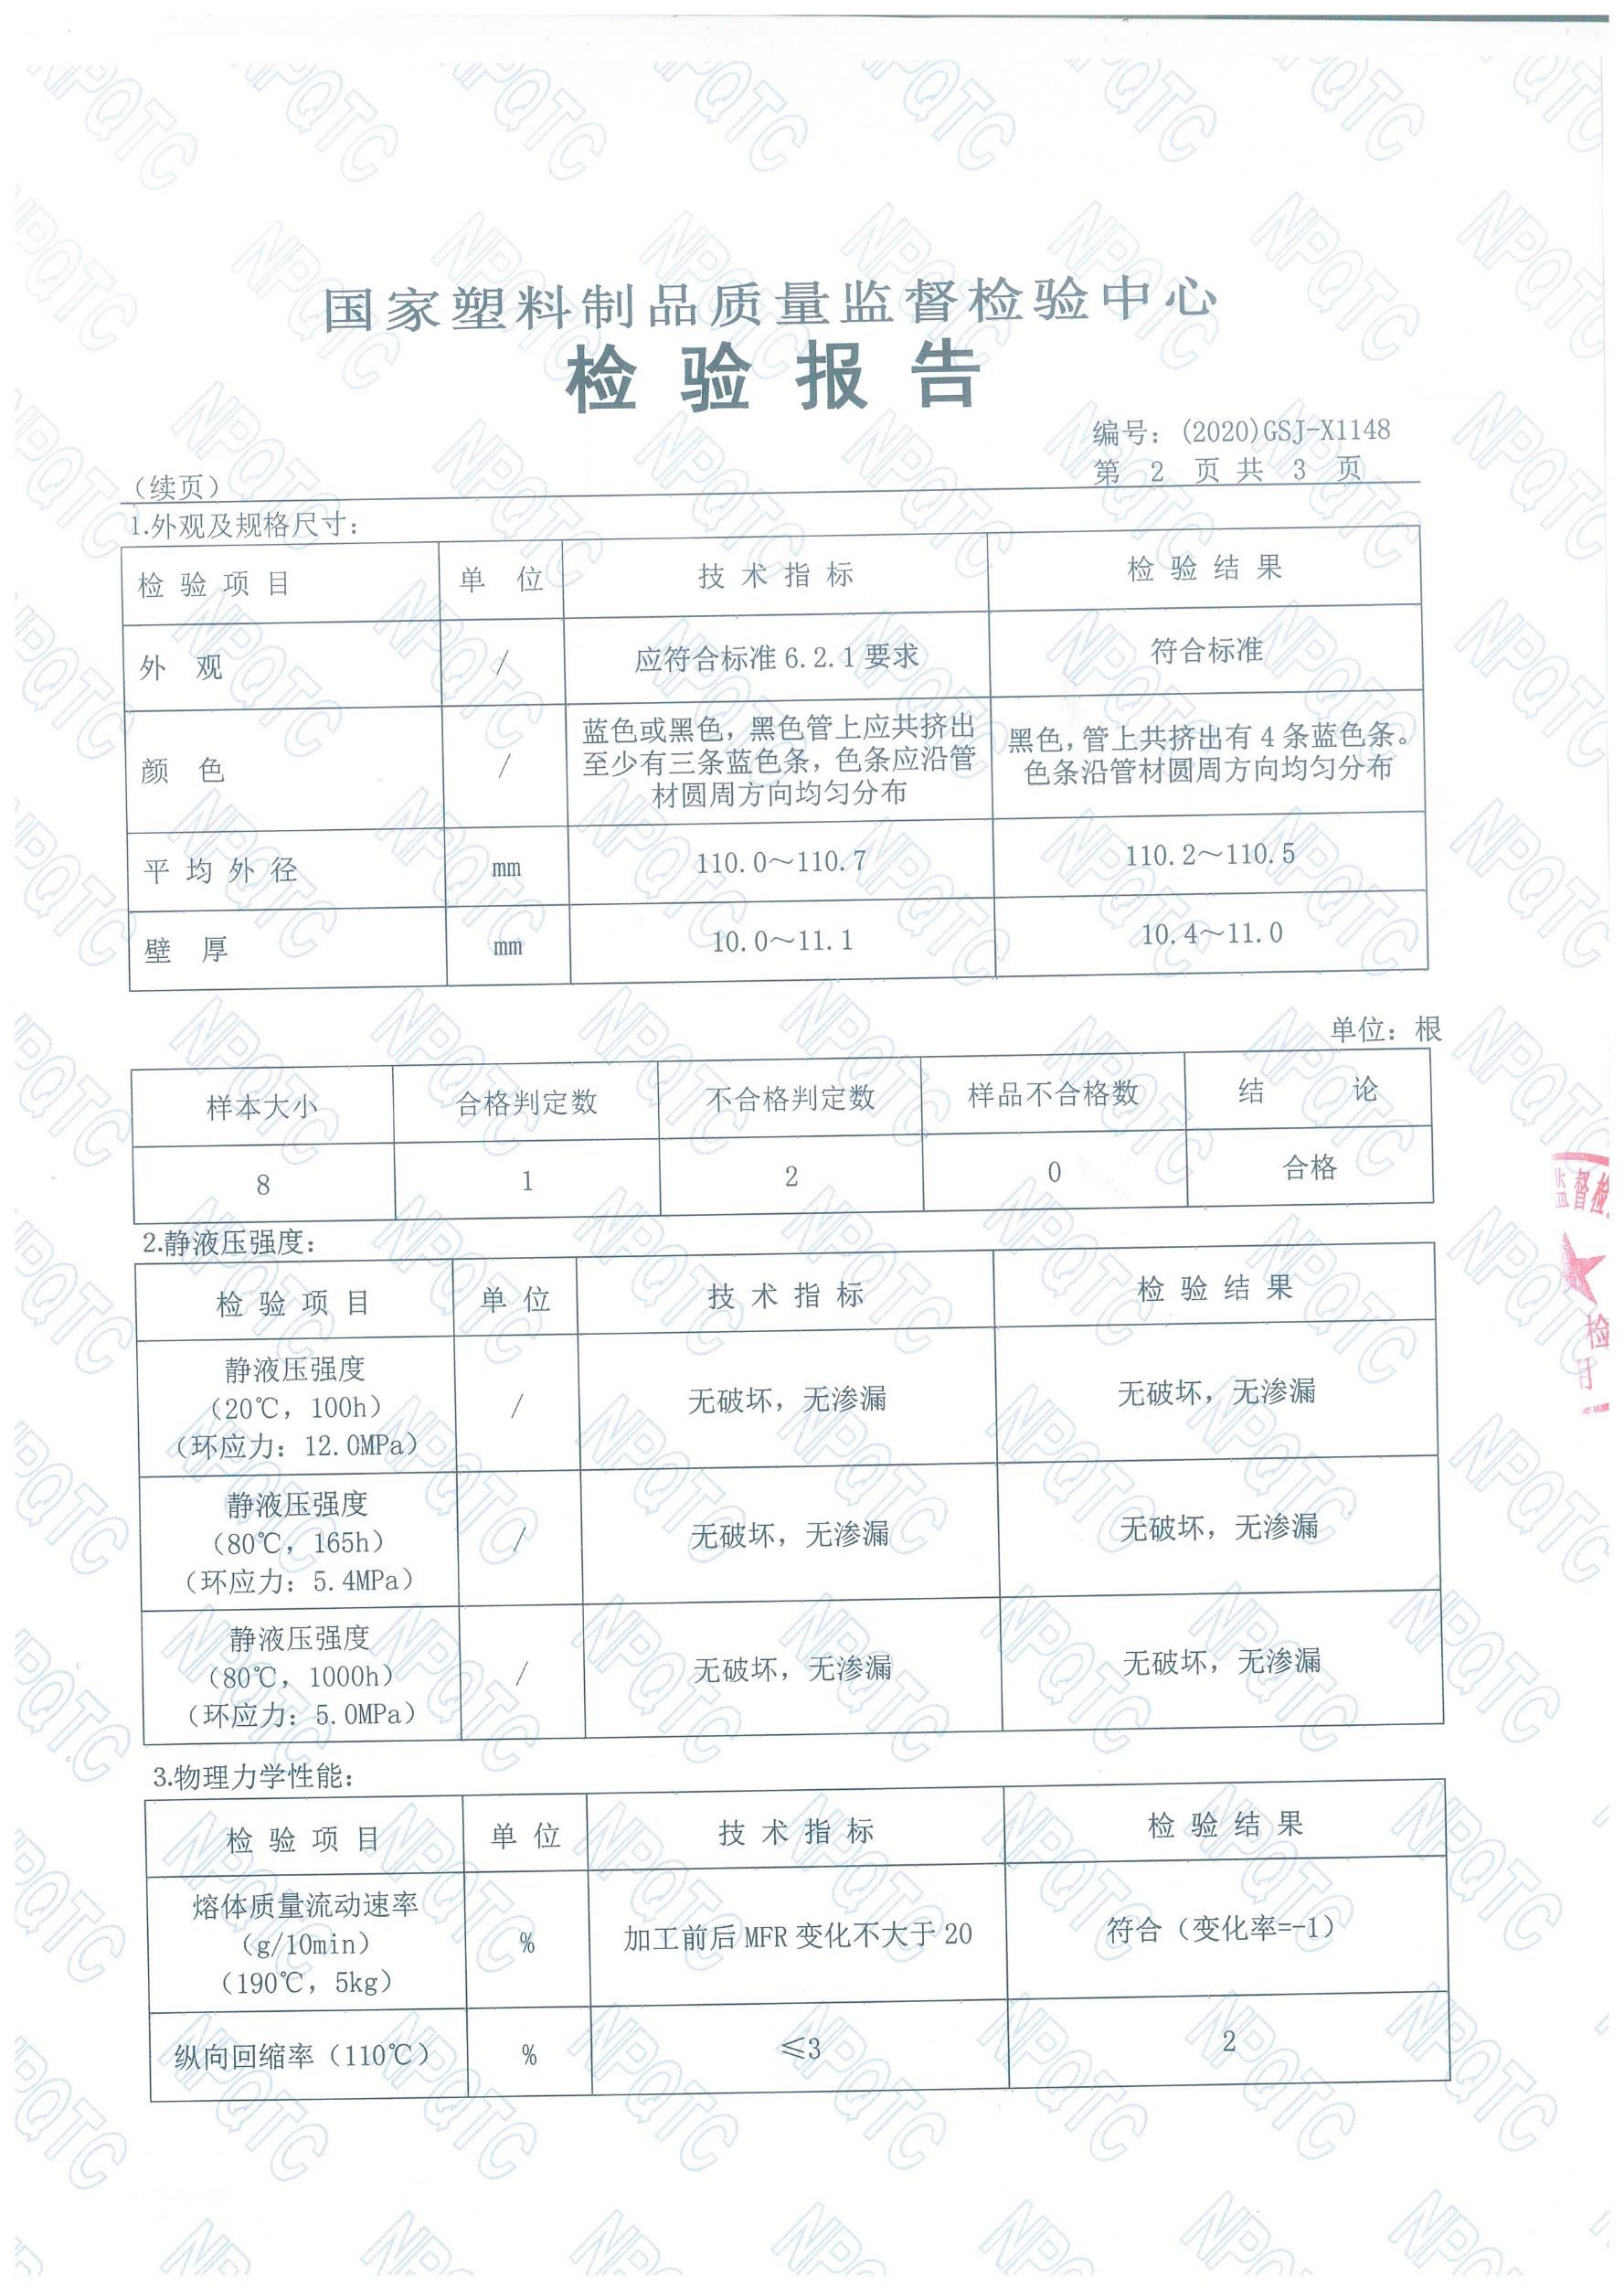 国家塑料制品质量监督检验中心
检验报告
编号：(2020)GSJ-X1148
第 2 页 共 3 页
（续页）
1.外观及规格尺寸：
检验项目 单位 技术指标 检验结果
外观 / 应符合标准6.2.1要求 符合标准
颜色 / 蓝色或黑色，黑色管上应共挤出
至少有三条蓝色条，色条应沿管
材圆周方向均匀分布
黑色，管上共挤出有4条蓝色条。
色条沿管材圆周方向均匀分布
平均外径 mm 110.0～110.7 110.2～110.5
壁厚 mm 10.0～11.1 10.4～11.0
单位：根
样本大小 合格判定数 不合格判定数 样品不合格数 结论
8 1 2 0 合格
2.静液压强度：
检验项目 单位 技术指标 检验结果
静液压强度
（20℃，100h）
（环应力：12.0MPa）
/ 无破坏，无渗漏 无破坏，无渗漏
静液压强度
（80℃，165h）
（环应力：5.4MPa）
/ 无破坏，无渗漏 无破坏，无渗漏
静液压强度
（80℃，1000h）
（环应力：5.0MPa）
/ 无破坏，无渗漏 无破坏，无渗漏
3.物理力学性能：
检验项目 单位 技术指标 检验结果
熔体质量流动速率
（g/10min）
（190℃，5kg）
% 加工前后MFR变化不大于20 符合（变化率=-1）
纵向回缩率（110℃） % ≤3 2
督检
检
NPQTC